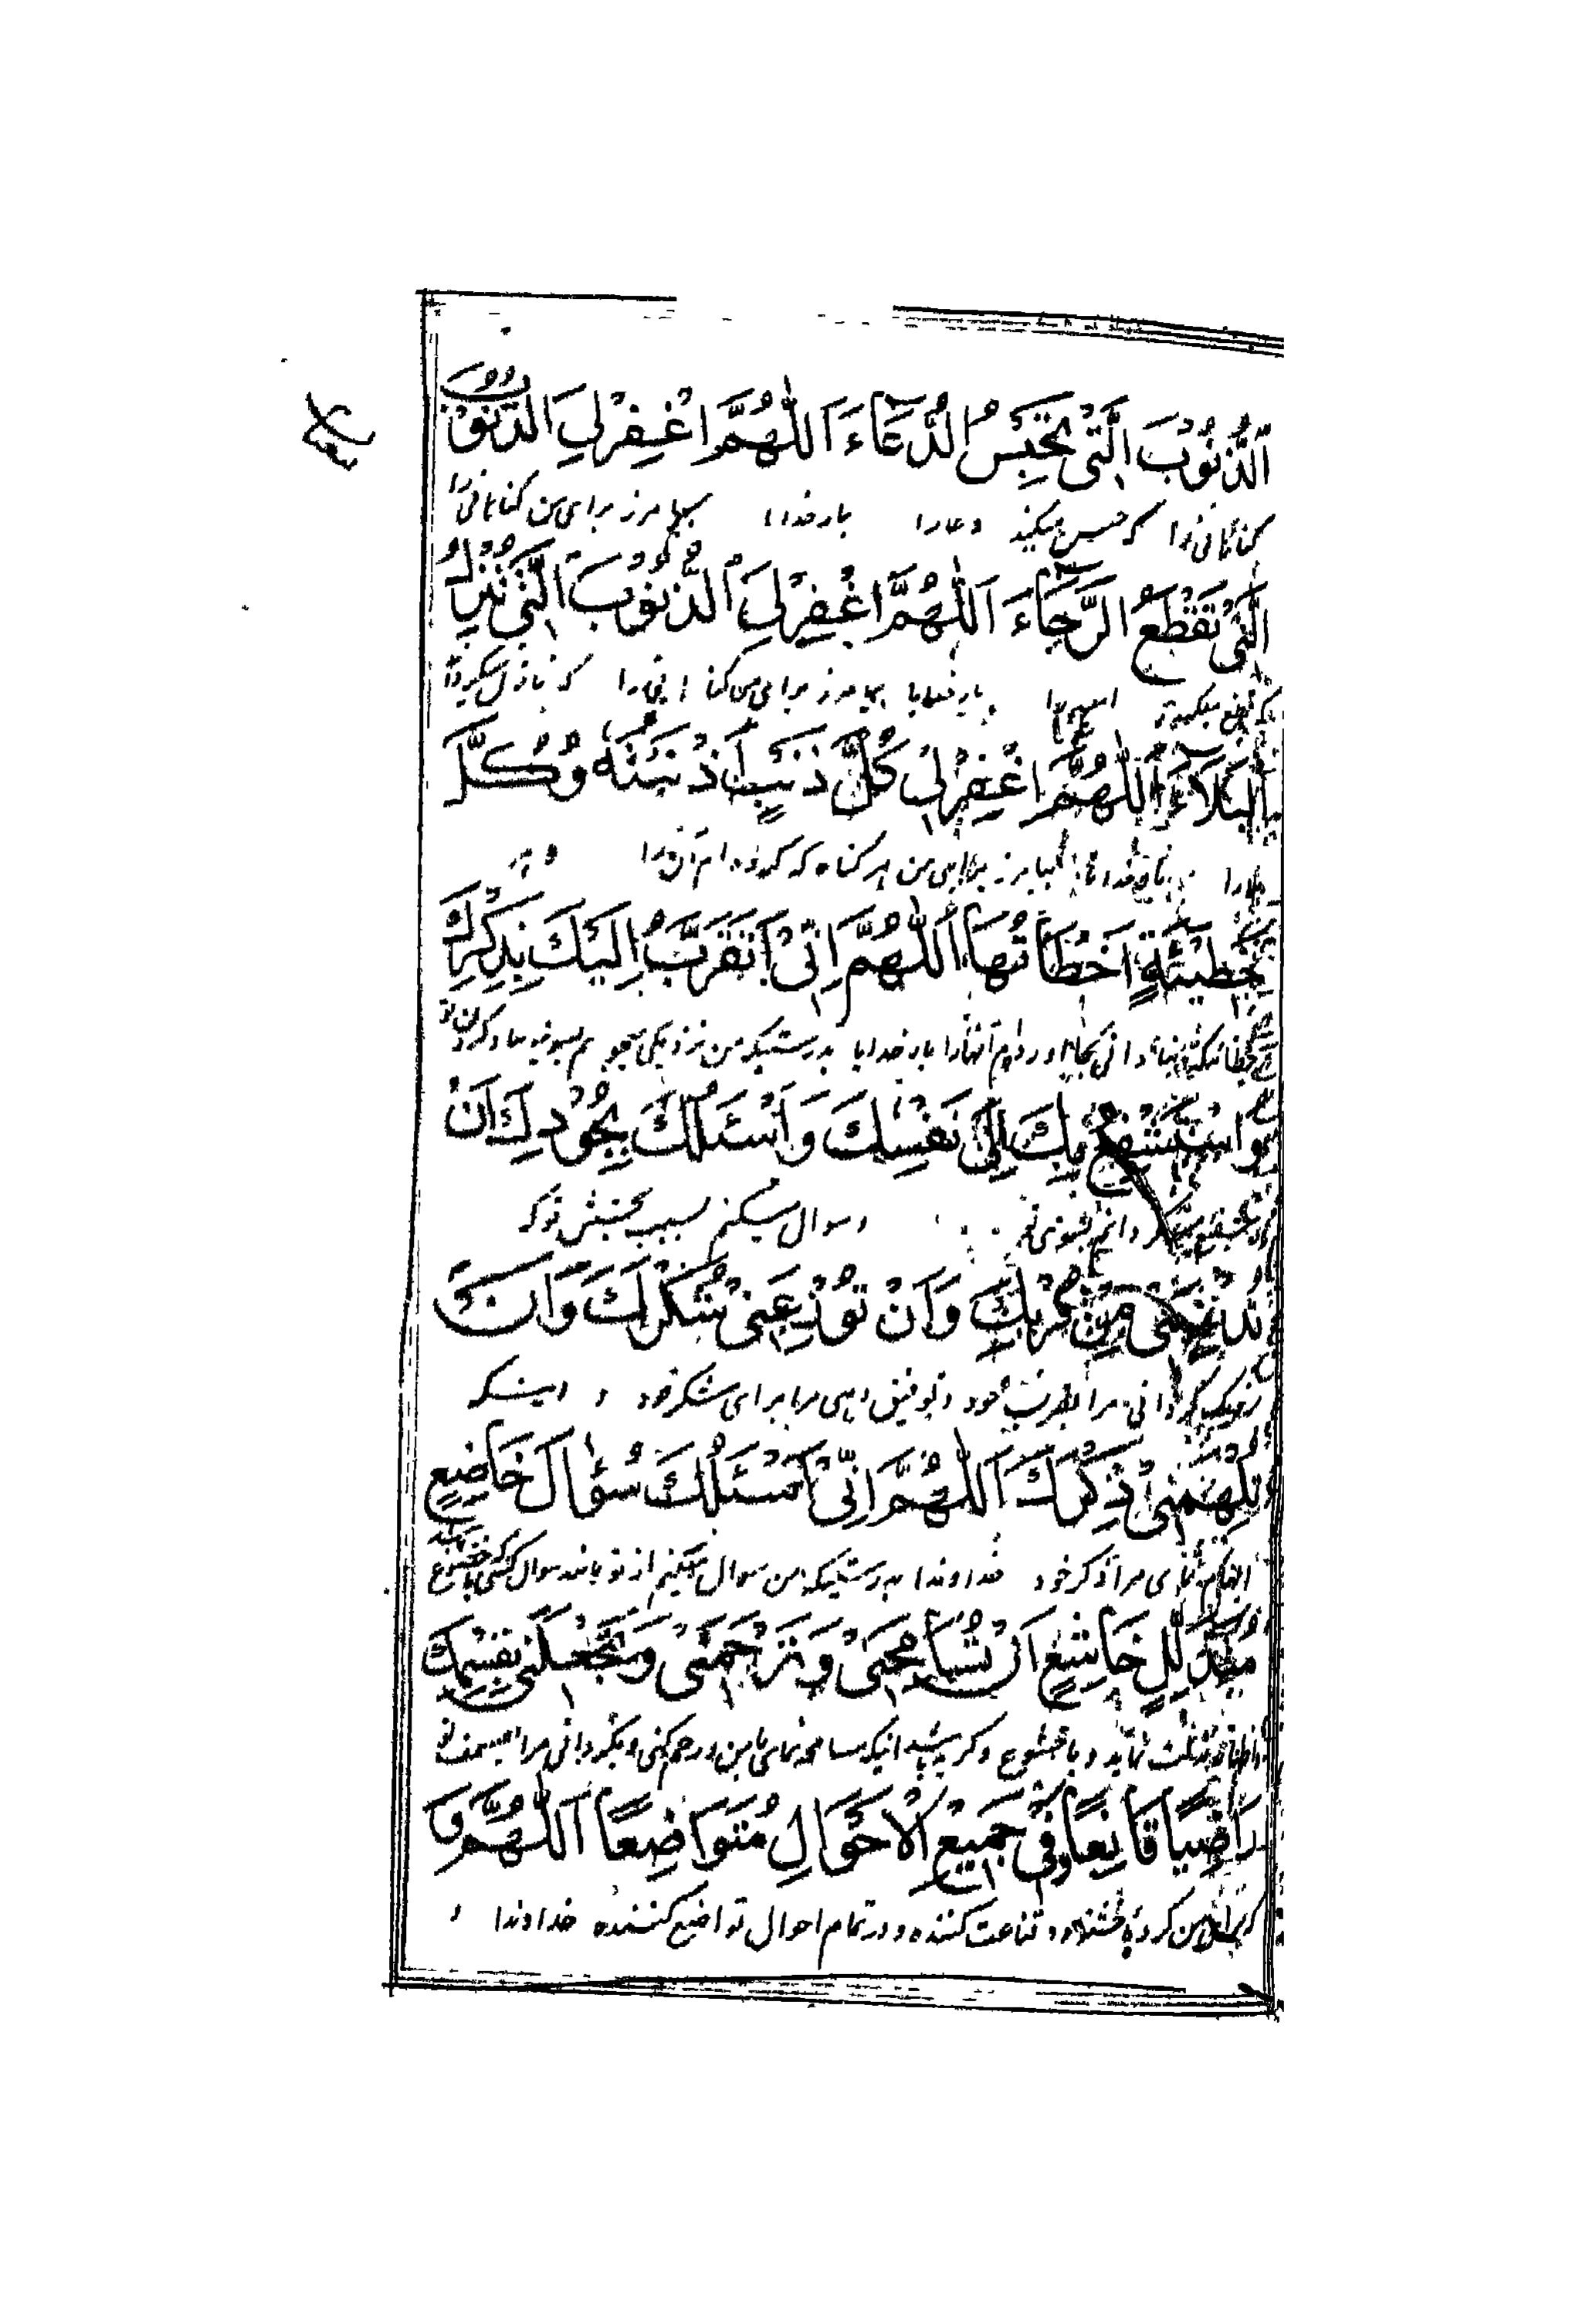 اَلذُّنُوْبَ الَّتِیْ تَحْبِسُ الدُّعَآءَ اَللّٰهُمَّ اغْفِرْلِیَ الذُّنُوْبَ
گناهانیرا که حبس میکنند دعا را بار خدایا بیامرز برای من گناهانیرا
الَّتِیْ تَقْطَعُ الرَّجَآءَ اَللّٰهُمَّ اغْفِرْلِیَ الذُّنُوْبَ الَّتِیْ تُنْزِلُ
که قطع میکنند امید را بار خدایا بیامرز برای من گناهانی را که نازل میگرداند
الْبَلَآءَ اَللّٰهُمَّ اغْفِرْلِیْ كُلَّ ذَنْبٍ اَذْنَبْتُهٗ وَكُلَّ
بلا را بار خدایا بیامرز برای من هر گناه که کرده ام آنرا و هر
خَطِیْئَةٍ اَخْطَاْتُهَا اَللّٰهُمَّ اِنِّیْ اَتَقَرَّبُ اِلَیْكَ بِذِكْرِكَ
آنها را بار خدایا بدرستیکه من نزدیکی میجویم بسوی تو بیاد کردن تو
وَاَسْتَشْفِعُ بِكَ اِلٰی نَفْسِكَ وَاَسْئَلُكَ بِجُوْدِكَ اَنْ
و سوال میکنم بسبب بخشش تو که
تُدْنِیَنِیْ مِنْ قُرْبِكَ وَاَنْ تُوْزِعَنِیْ شُكْرَكَ وَاَنْ
نزدیک گردانی مرا بقرب خود و توفیق دهی مرا برای شکر خود و اینکه
تُلْهِمَنِیْ ذِكْرَكَ اَللّٰهُمَّ اِنِّیْ اَسْئَلُكَ سُؤَالَ خَاضِعٍ
الهام نمای مرا ذکر خود خداوندا بدرستیکه من سوال میکنم از تو مانند سوال کسی که با خضوع باشد
مُتَذَلِّلٍ خَاشِعٍ اَنْ تُسَامِحَنِیْ وَتَرْحَمَنِیْ وَتَجْعَلَنِیْ بِقِسْمِكَ
و با خشوع و گریه باشد اینکه مسامحه نمای با من و رحم کنی و بگردانی مرا بقسمت تو
رَاضِیًا قَانِعًا وَفِیْ جَمِیْعِ الْاَحْوَالِ مُتَوَاضِعًا اَللّٰهُمَّ وَ
قناعت کننده و در تمام احوال تواضع کننده خداوندا و